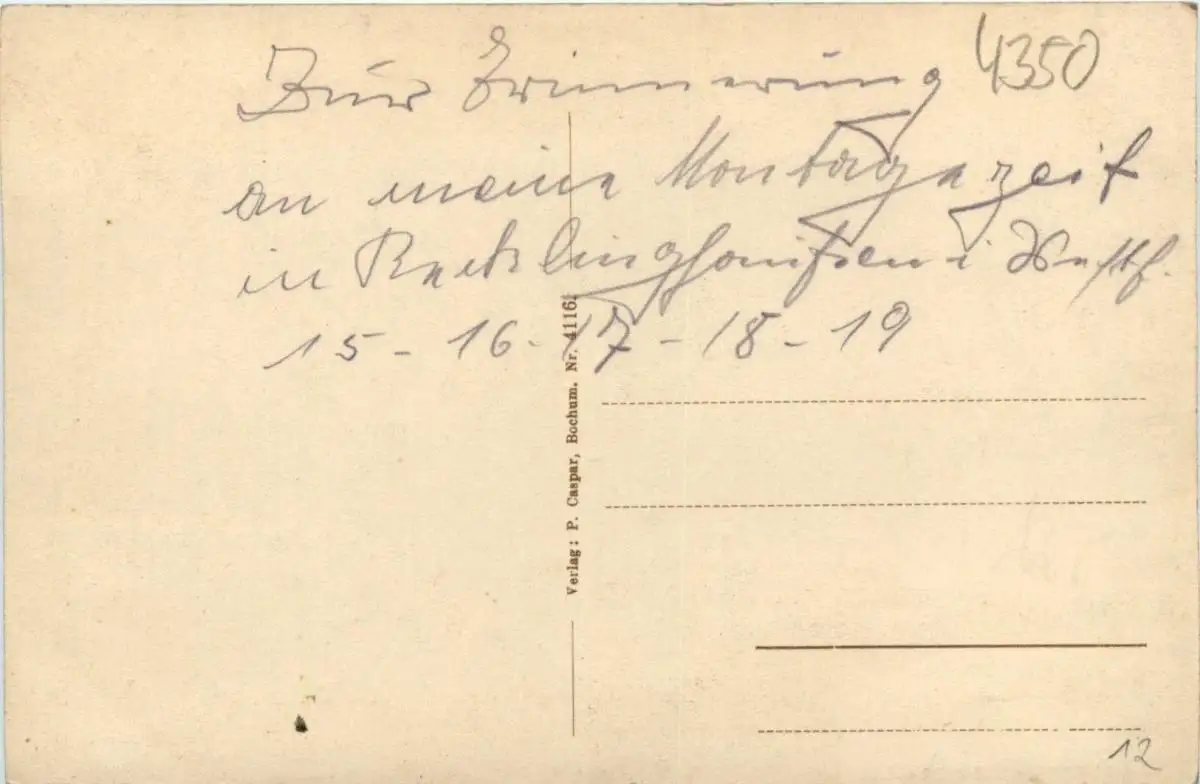 Zur Erinnerung
4350
an meine Montagezeit
in Recklinghausen i Westf.
15 - 16 - 17 - 18 - 19
Verlag: P. Caspar, Bochum. Nr. 4116.
12